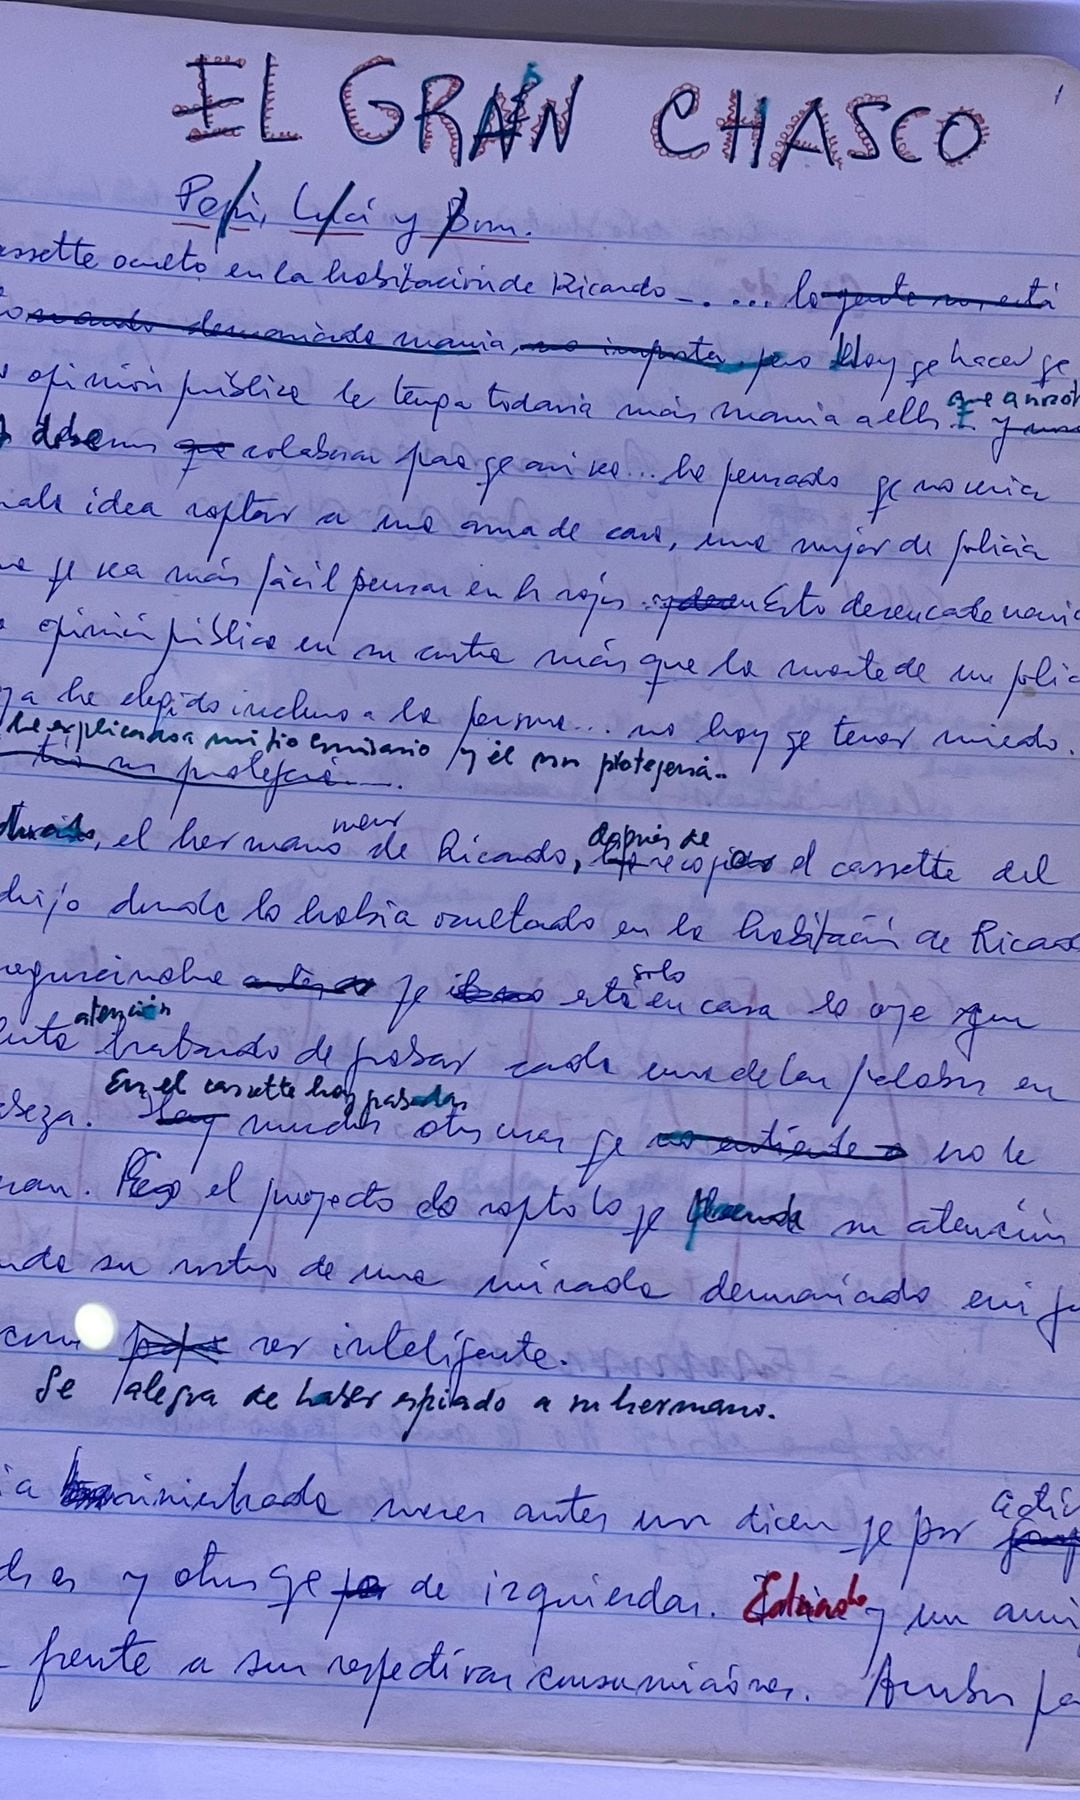 EL GRAN CHASCO
1
Pepi, Luci y Bom.
assette oculto en la habitación de Ricardo -. ... la gente nos está
tomando demasiada mania, no importa, pero Hay qe hacer qe
opinión pública le tenga todavia más mania a ellos y
debemos que colaborar para qe asi sea... he pensado qe no seria
mala idea raptar a una ama de casa, una mujer de policia
qe sea más fácil pensar en los rojos. Esto desencadenaria
opinión pública en su contra más que la muerte de un polic
ya he elegido incluso a la persona... no hay qe tener miedo.
he explicado a mi tio Comisario y él nos protegerá..
tio nos protejerá.
, el hermano menor de Ricardo, después de recoger el cassette del
dijo donde lo habia ocultado en la habitación de Ricard
asegurándose antes qe está solo en casa lo oye con
atención tratando de grabar cada una de las palabras en
beza. En el cassette hay grabadas Hay muchas otras cosas qe no entiende no le
Pero el proyecto de rapto si qe llama su atención
su rostro de una mirada demasiado
ser inteligente.
Se alegra de haber espiado a su hermano.
ministrada meses antes unos dicen qe por
y otros qe por de izquierdas. Eduardo y un ami
frente a sus respectivas consumiciones. Ambos